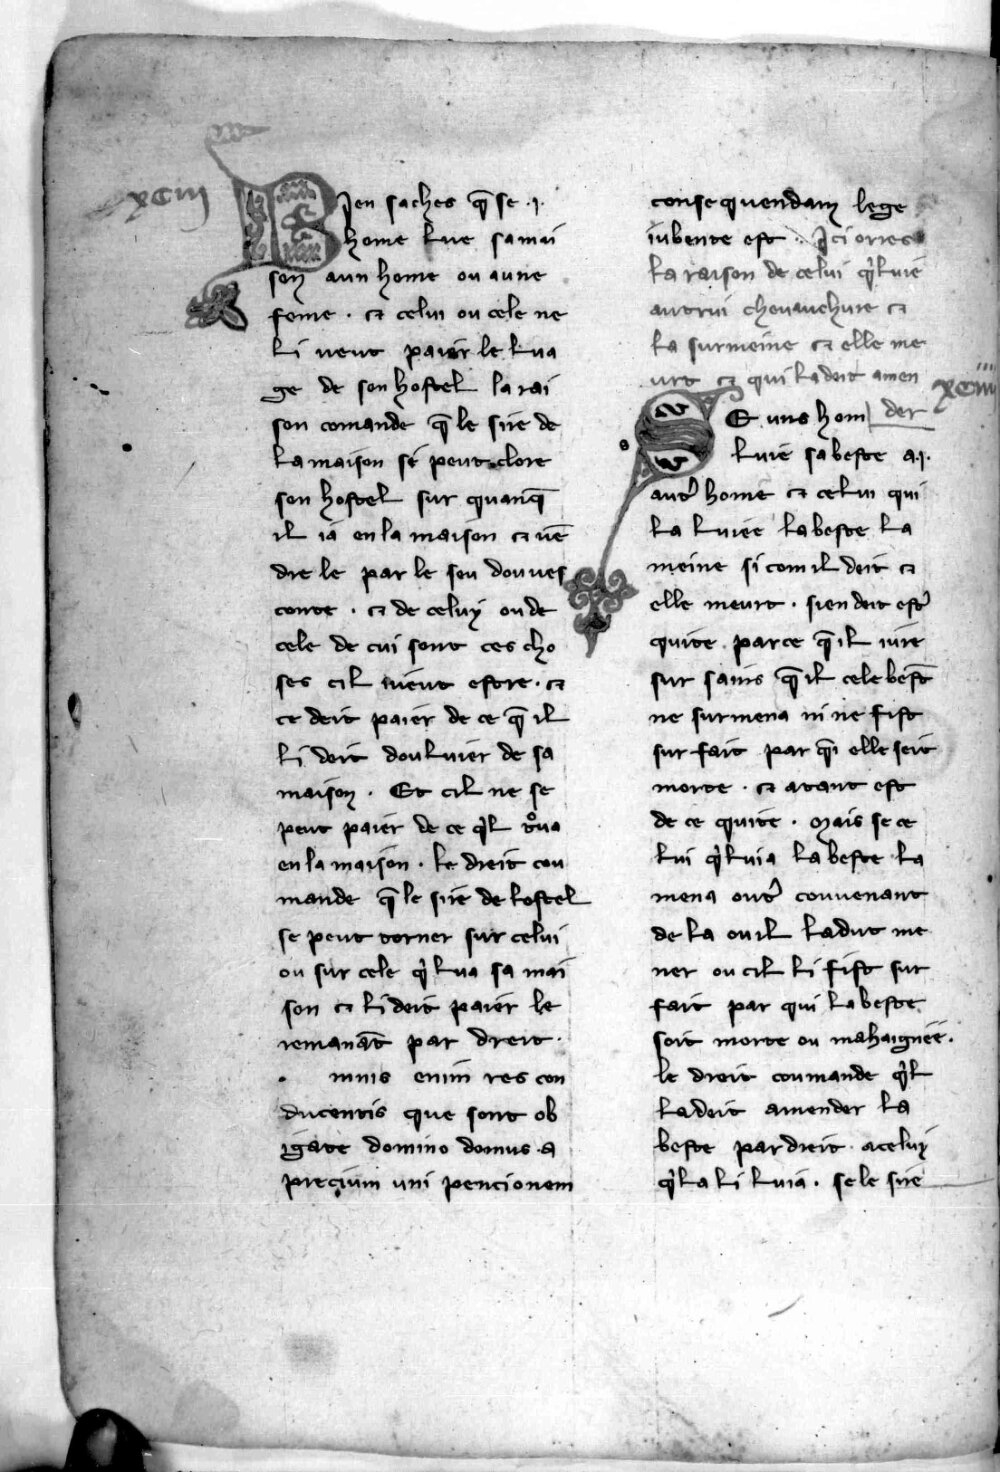 xciii
Bien saches q̄ se .i.
home lue sa mai
son aun home ou aune
feme . ⁊ celui ou cele ne
li veut paier le lua
ge de son hostel la rai
son comande q̄ le sire de
la maison se peut clore
son hostel sur quanq̄
il ia en la maison ⁊ vē
dre le par le seu dou ves
conte . ⁊ de celuy ou de
cele de cui sont ces cho
ses cil vieut estre . ⁊
ce deit paier de ce q̄ il
li deit dou luier de sa
maison . Et cil ne se
peut paier de ce qͥl tͦua
en la maison . le dreit cou
mande q̄ le sire de lostel
se peut torner sur celui
ou sur cele qͥ lua sa mai
son ⁊ li deit paier le
remanāt par dreit .
. mnis enim res con
ducentis que sont ob
igate domino domus a
precium uni pencionem
consequendam lege
iubente est . Ici orres
la raison de celui qͥ luie
autrui chevauchure ⁊
la surmeine ⁊ elle me
urt ⁊ qui la deit amen
der
xciiii
Se uns hom
luie sa beste a .i.
autͤ home ⁊ celui qui
la luiee la beste la
meine si com il deit ⁊
elle meurt . si en deit estͤ
quite par ce q̄ il iure
sur sains q̄ il cele best̄
ne surmena ni ne fist
surfait par qͥ elle seit
morte . ⁊ atant est
de ce quite . Mais se ce
lui qͥ luia la beste la
mena outͤ couvenant
de la ou il la dut me
ner ou cil li fist sur
fait par qui la beste
soit morte ou mahaignée .
le dreit coumande qͥl
la deit amender la
beste par dreit a celuy
qͥ la li luia . se le sire